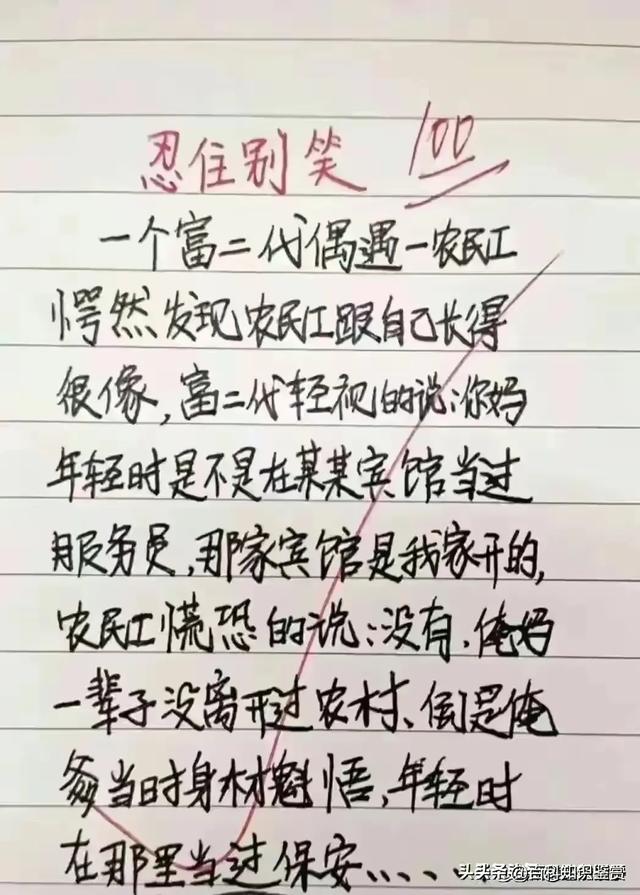 忍住别笑 100
一个富二代偶遇一农民工
愕然发现农民工跟自己长得
很像,富二代轻视的说:你妈
年轻时是不是在某某宾馆当过
服务员,那家宾馆是我家开的,
农民工慌恐的说:没有,俺妈
一辈子没离开过农村、倒是俺
爹当时身材魁悟,年轻时
在那里当过保安、、、、
头条@百科知识鉴赏